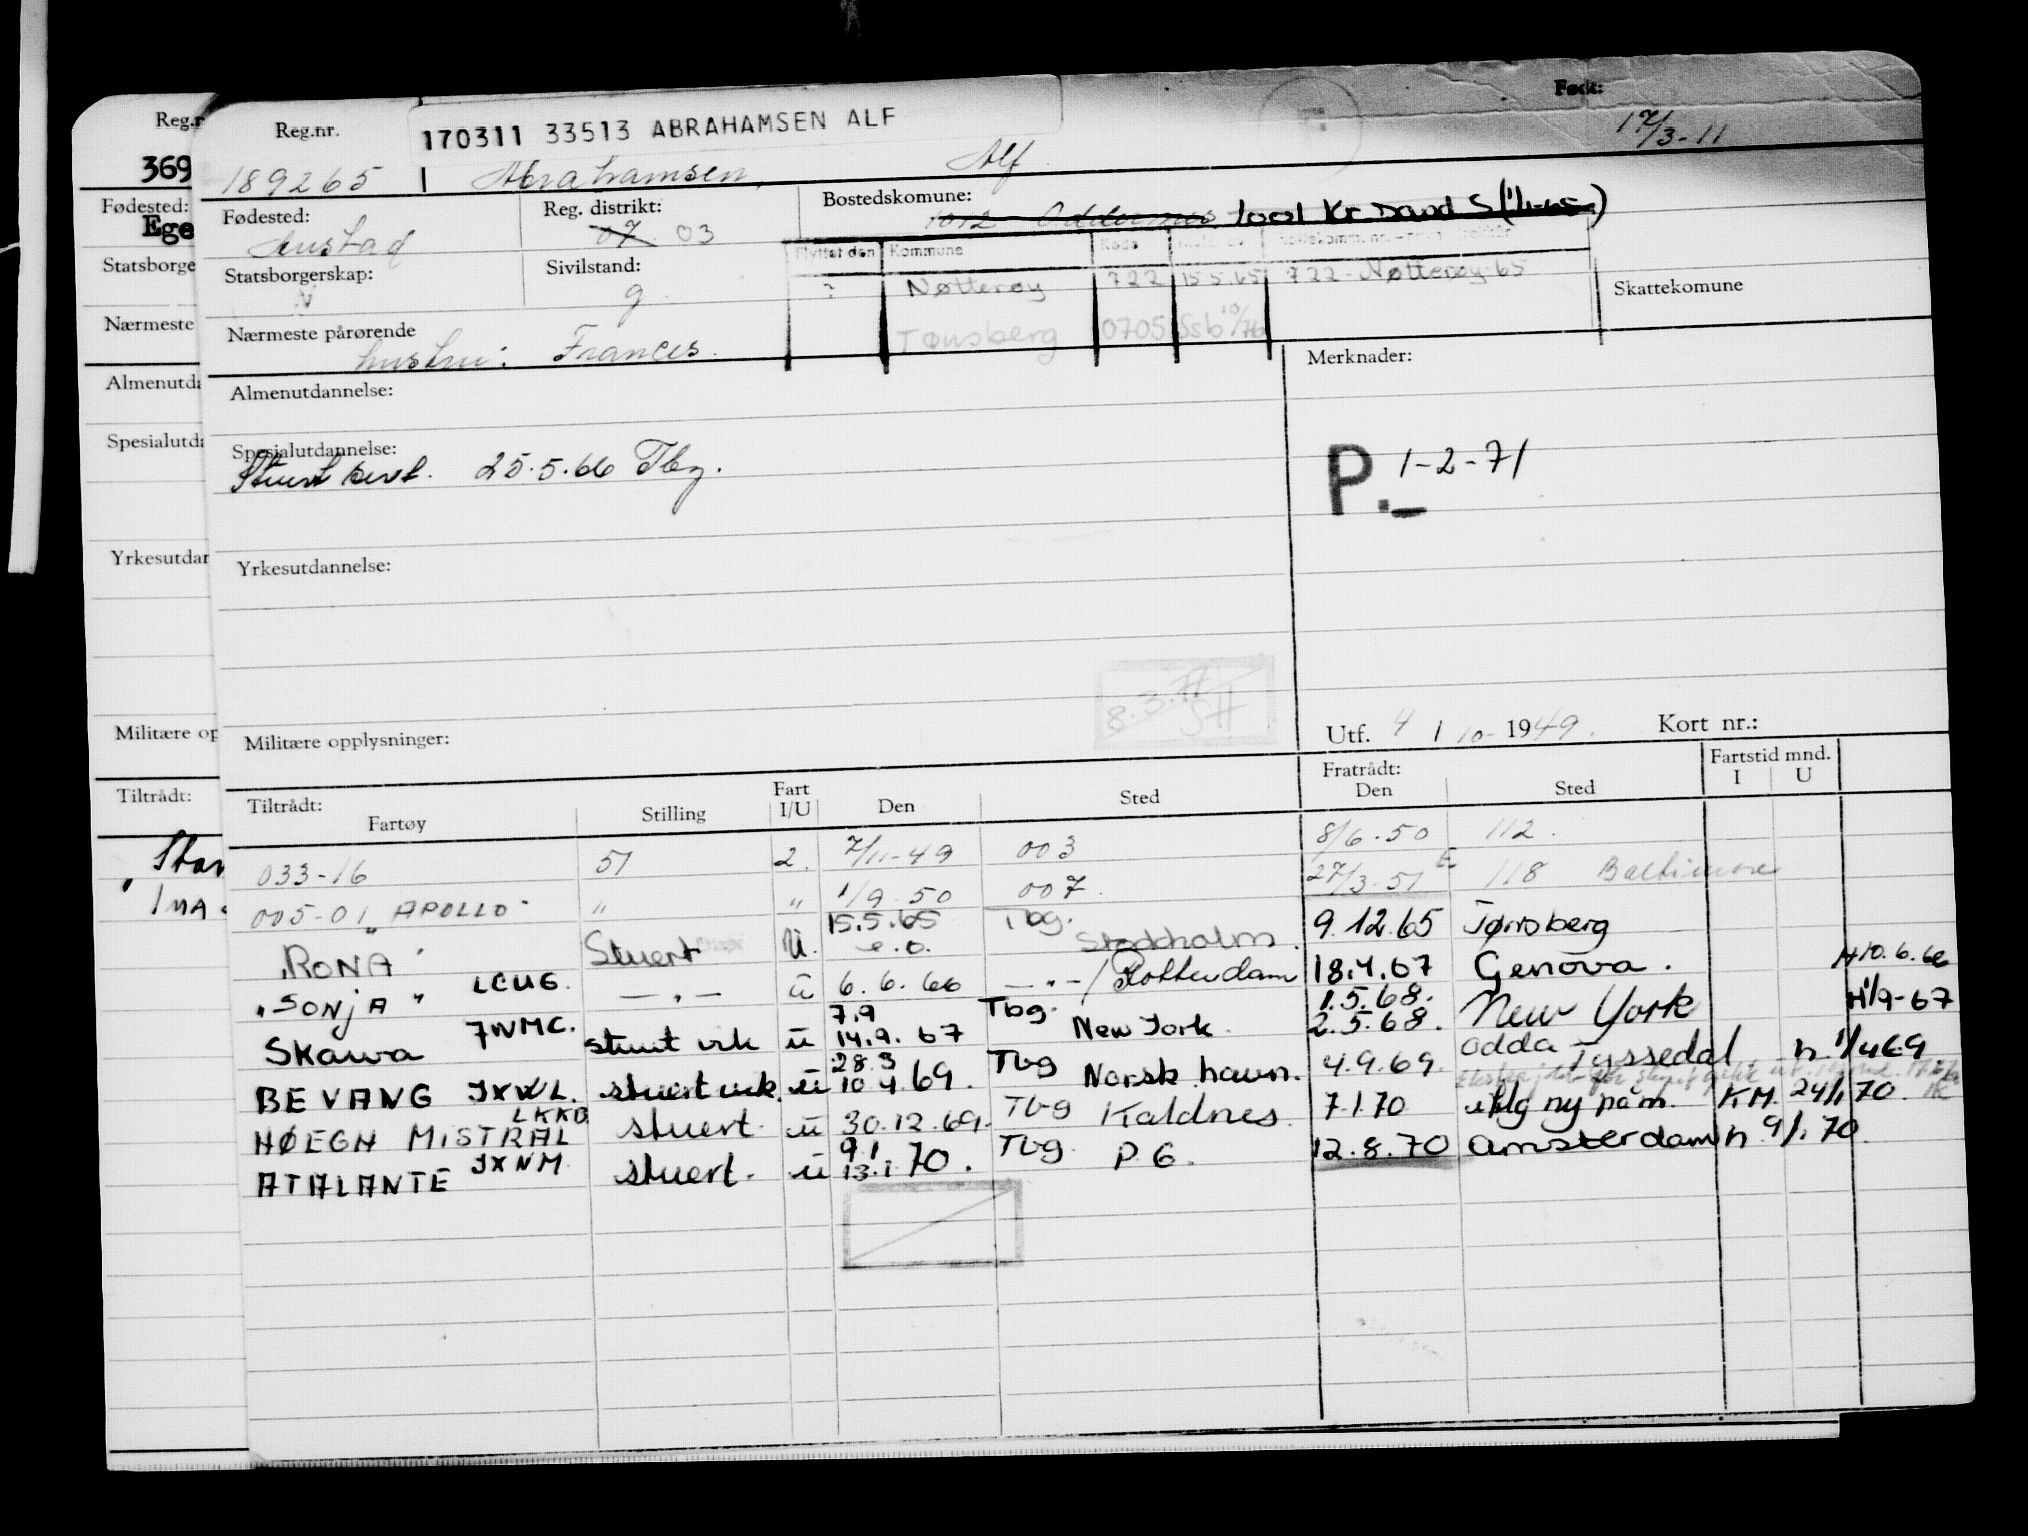 Reg.nr.
369
Fødested:
Ege
Statsborge
Nærmeste
Almenutda
Spesialutda
Yrkesutdan
Militære op
Tiltrådt:
Født:
Reg.nr. 170311 33513 ABRAHAMSEN ALF 17/3-11
189265 Abrahamsen, Alf
Fødested: Reg. distrikt: Bostedskomune:
07 03 1012 Oddernes 1001 Kr Sand S (1/1-65)
Flyttet den Kommune Kode
Statsborgerskap: Sivilstand:
N g ? Nøtterøy 722 15.5.65 722 - Nøtterøy-65
Skattekomune
Nærmeste pårørende Tønsberg 0705 Ssb 10/76
hustru: Frances.
Almenutdannelse: Merknader:
Spesialutdannelse:
Stuert sert. 25.5.66 Tbg. P. 1-2-71
Yrkesutdannelse:
8.3.77 SH
Militære opplysninger: Utf. 4 / 10- 1949. Kort nr.:
Tiltrådt: Fratrådt: Fartstid mnd.
Fartøy Stilling Fart I/U Den Sted Den Sted I U
033-16 51 2. 7/11-49 003 8/6.50 112.
005-01 "APOLLO" " " 1/9.50 007. 27/3-51 E 118 Baltimore
"RONA" Stuert U. 15.5.65 e.o. Tbg. Stockholm. 9.12.65 Tønsberg
"SONJA" LCUG. — " — u 6.6.66 — " — / Rotterdam 18.4.67 Genova. H10.6.66
Skawa JWMC. stuert vik u 7.9 14.9.67 Tbg. New York. 1.5.68. 2.5.68. New York H1/9-67
BEVANG JXWL. stuert vik. u 28.3 10.4.69. Tbg Norsk havn. 4.9.69. Odda Tyssedal h. 1/4 69
HØEGH MISTRAL LKKO stuert. u 30.12.69. Tbg Kaldnes 7.1.70 ny påm. KM. 24/1 70.
ATALANTE JXNM stuert. u 9.1 13.1.70. Tbg. P.G. 12.8.70 Amsterdam h 9/1.70.